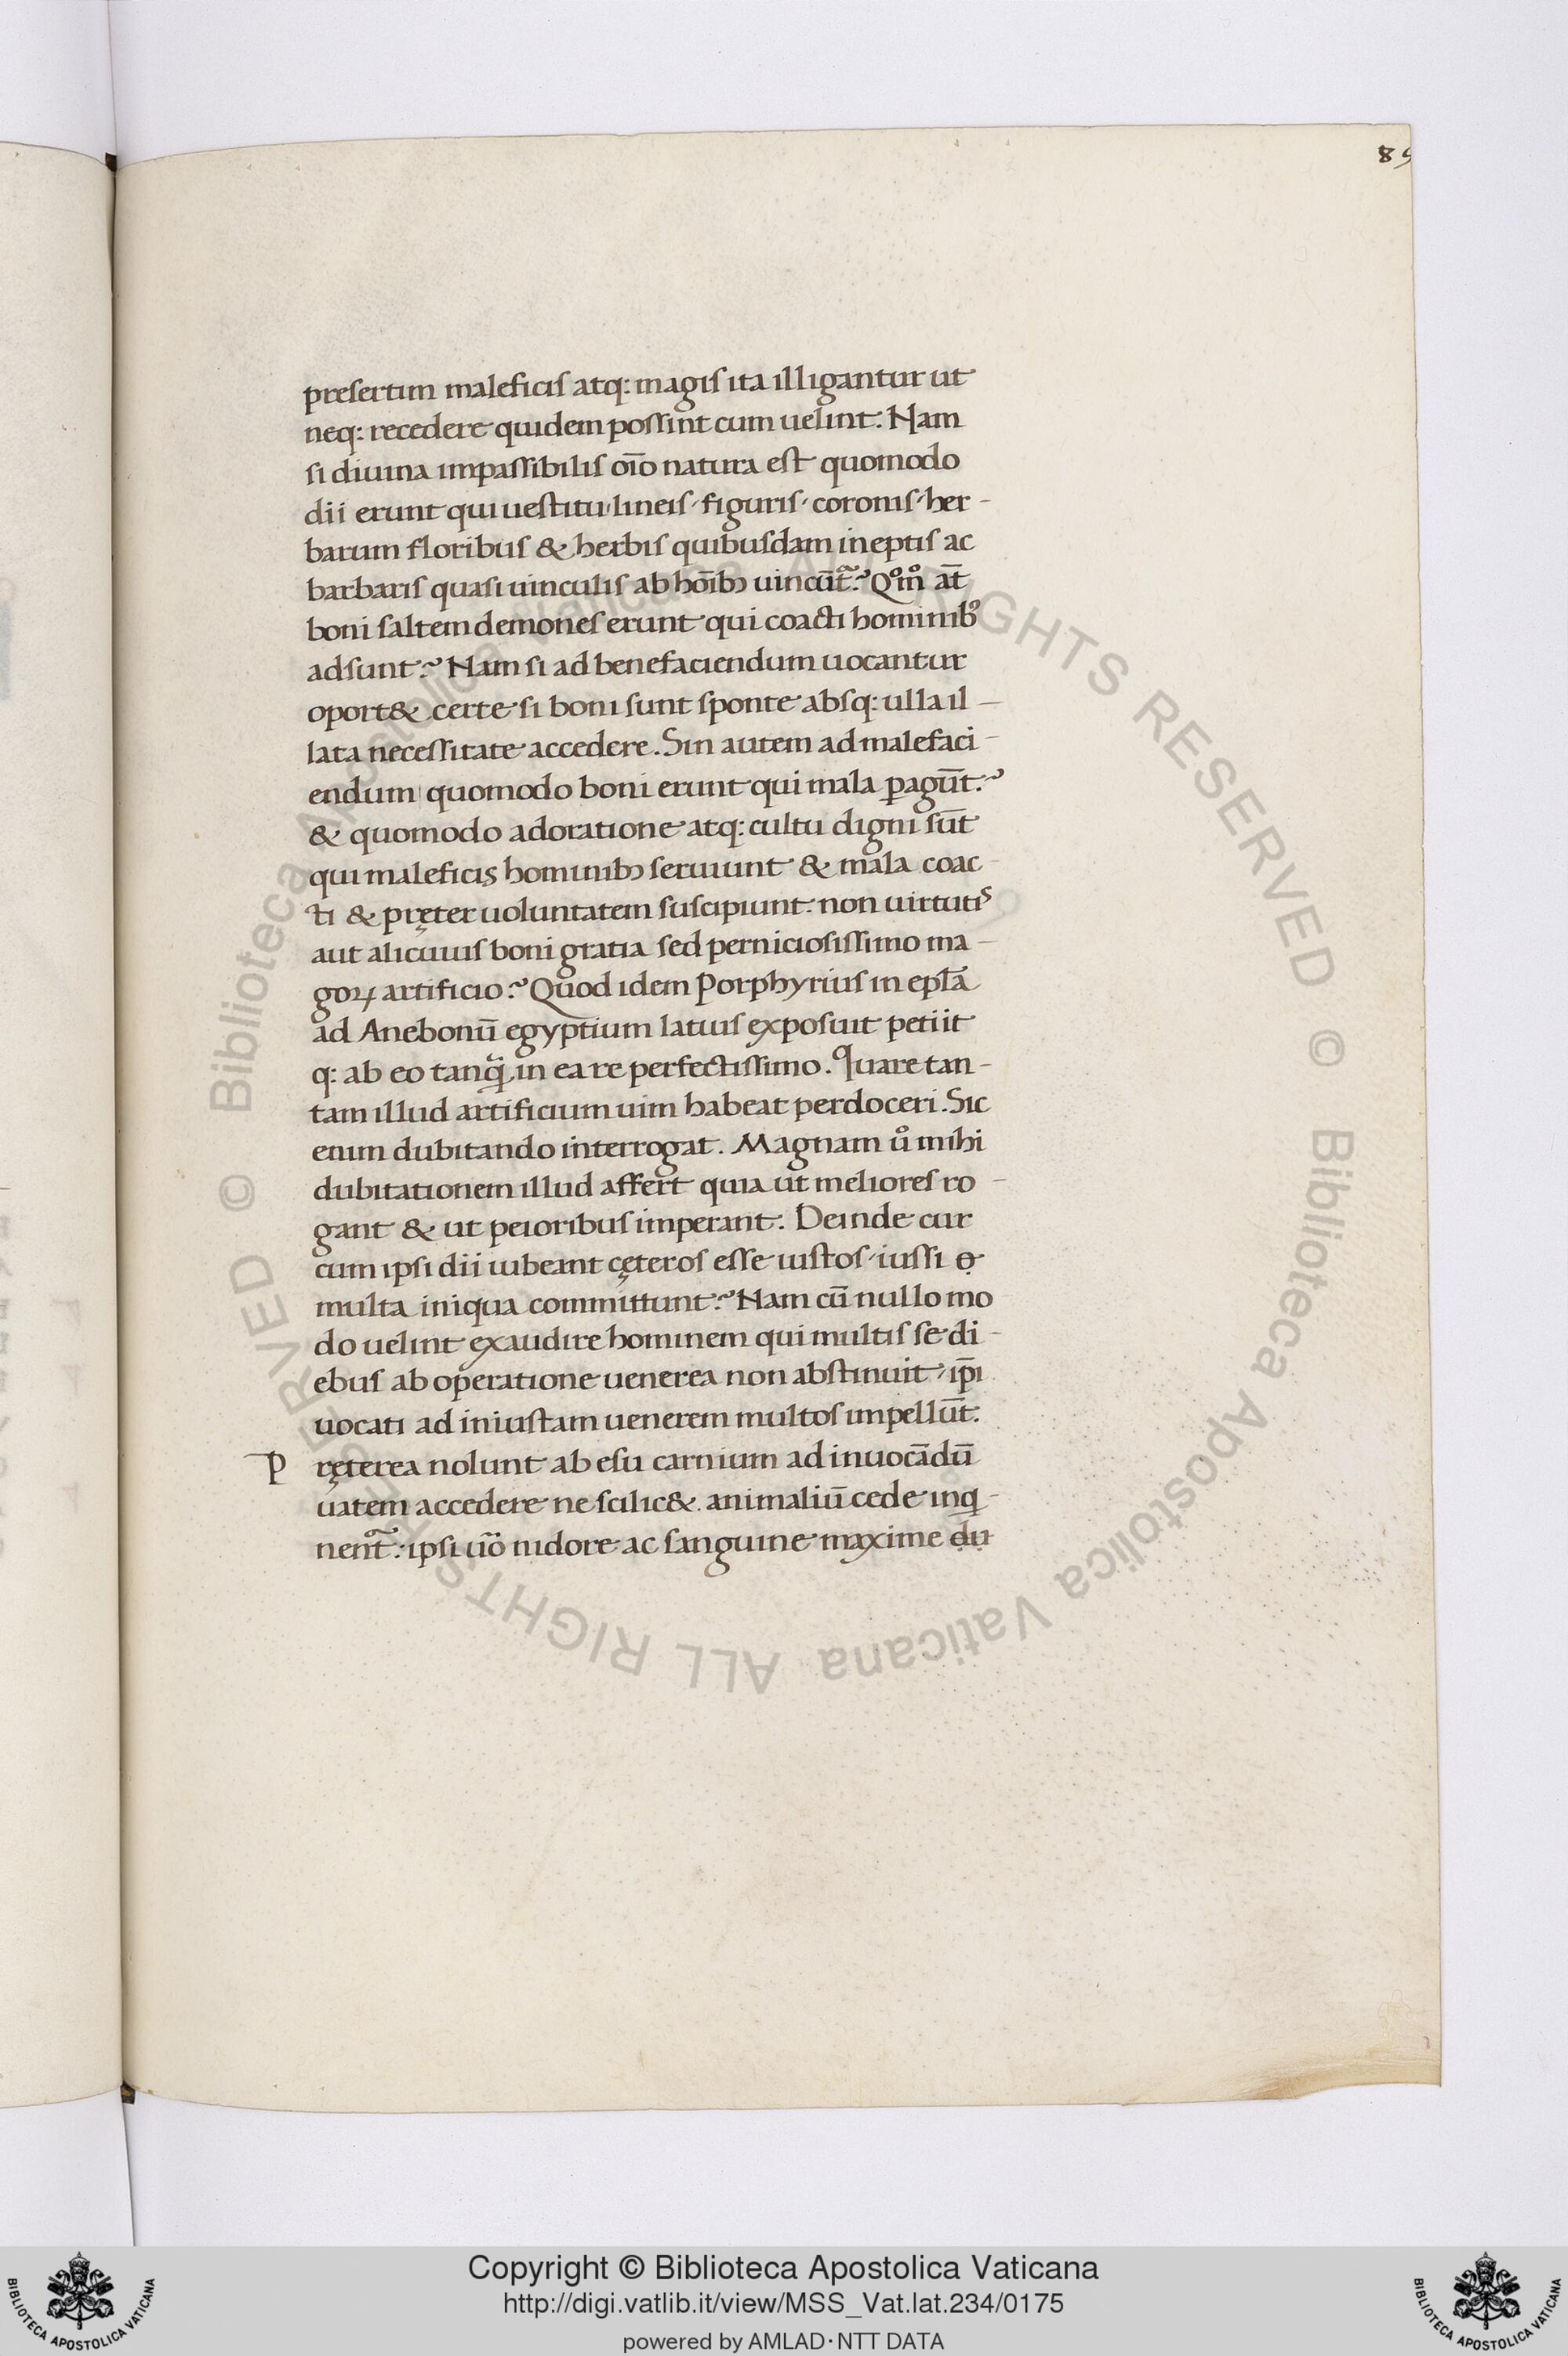 85
presertim maleficis atq: magis ita illigantur ut
neq: recedere quidem possint cum uelint. Nam
si diuina impassibilis oīo natura est quomodo
dii erunt qui uestitu lineis figuris coronis her-
barum floribus & herbis quibusdam ineptis ac
barbaris quasi uinculis ab hoīb; uincūt̃? Qͦmͦ at̄
boni saltem demones erunt qui coacti hominibꝰ
adsunt? Nam si ad benefaciendum uocantur
oport& certe si boni sunt sponte absq: ulla il-
lata necessitate accedere. Sin autem ad malefaci-
endum quomodo boni erunt qui mala ꝑagūt?
& quomodo adoratione atq: cultu digni sūt
qui maleficis hominib; seruiunt & mala coac-
ti & pręter uoluntatem suscipiunt. non uirtutis
aut alicuius boni gratia sed perniciosissimo ma-
goꝝ artificio? Quod idem Porphyrius in epl̄a
ad Anebonū egyptium latius exposuit petiit
q: ab eo tanꝗ in ea re perfectissimo. Quare tan-
tam illud artificium uim habeat perdoceri. Sic
enim dubitando interrogat. Magnam uͦ mihi
dubitationem illud affert quia ut meliores ro-
gant & ut peioribus imperant. Deinde cur
cum ipsi dii iubeant cęteros esse iustos iussi ẹ
multa iniqua committunt? Nam cū nullo mo
do uelint exaudire hominem qui multis se di-
ebus ab operatione uenerea non abstinuit, ip̄i
uocati ad iniustam uenerem multos impellūt.
Pręterea nolunt ab esu carnium ad inuocādū
uatem accedere ne scilic& animaliū cede inq-
nent̃. ipsi uō nidore ac sanguine maxime du
© Biblioteca Apostolica Vaticana ALL RIGHTS RESERVED © Biblioteca Apostolica Vaticana ALL RIGHTS RESERVED
BIBLIOTECA APOSTOLICA VATICANA
Copyright © Biblioteca Apostolica Vaticana
http://digi.vatlib.it/view/MSS_Vat.lat.234/0175
powered by AMLAD·NTT DATA
BIBLIOTECA APOSTOLICA VATICANA